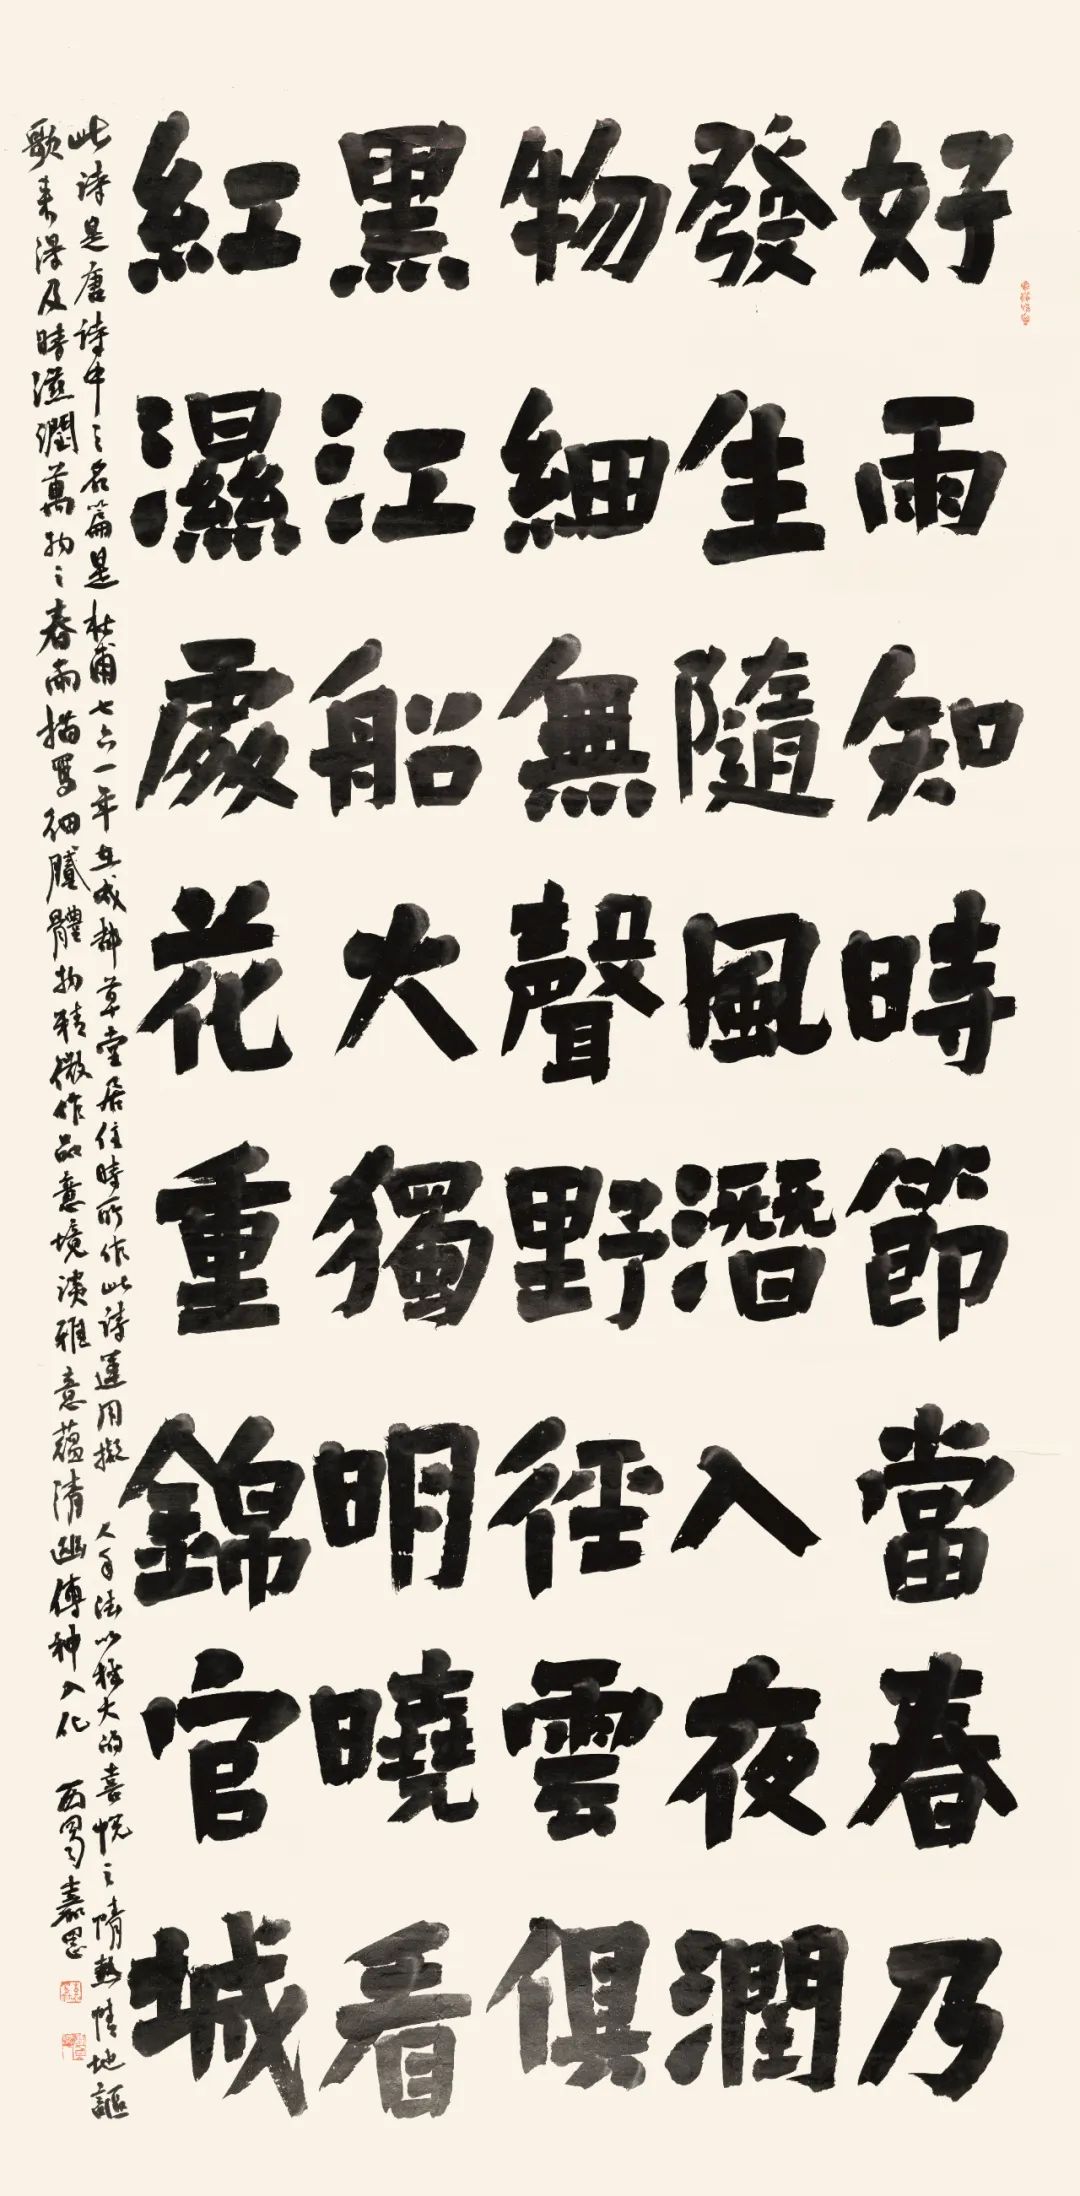 好雨知時節當春乃
發生隨風潛入夜潤
物細無聲野徑雲俱
黑江船大獨明曉看
紅濕處花重錦官城
此诗是唐诗中之名篇是杜甫七六一年在成都草堂居住時所作此诗運用擬人手法以極大的喜悅之情熱情地謳
歌来得及時滋潤萬物之春雨描寫細膩體物精微作品意境淡雅意蕴清幽傳神入化 西蜀嘉恩